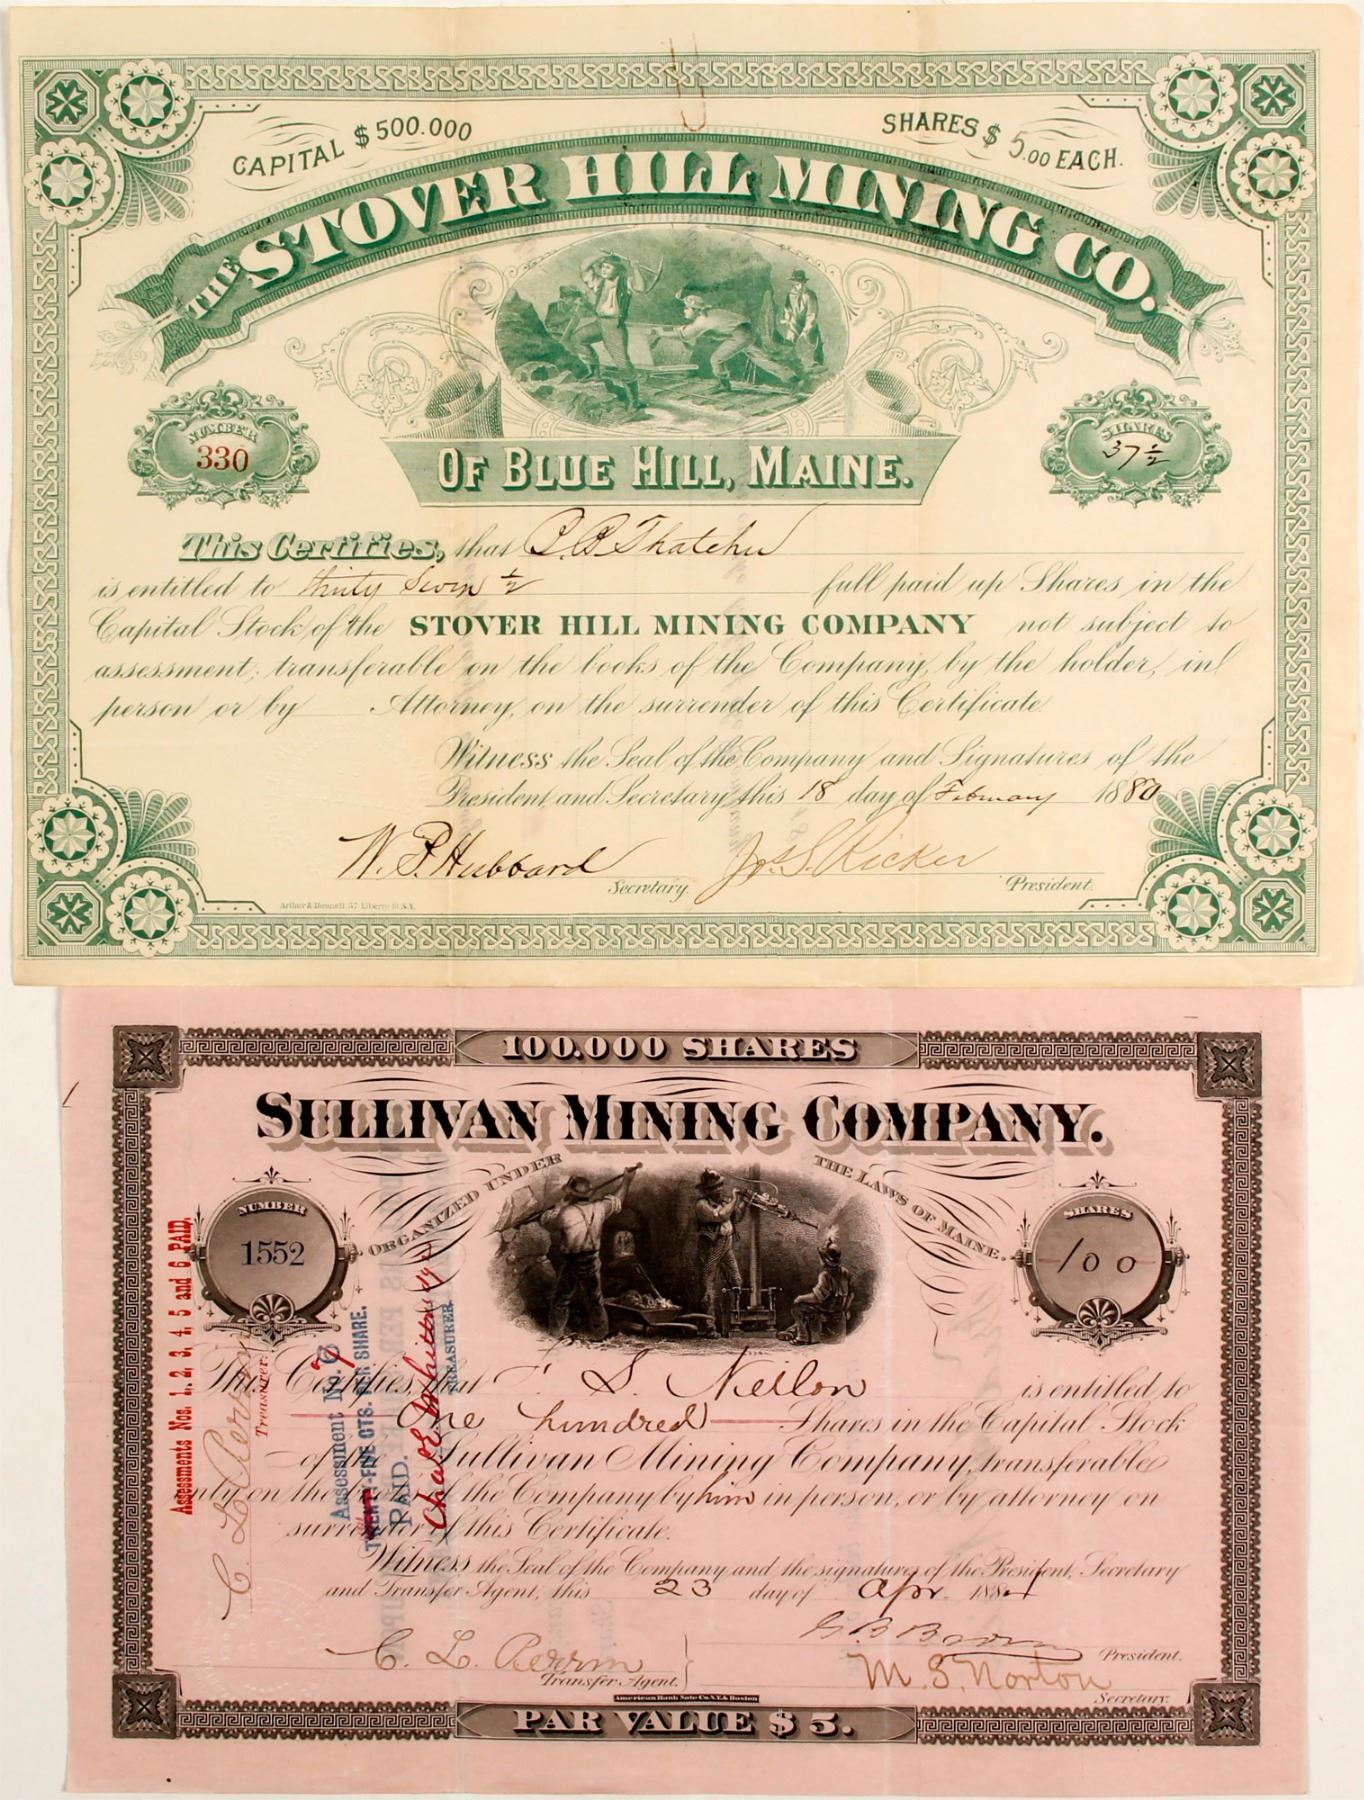 CAPITAL $500.000
SHARES $5.00 EACH.
THE STOVER HILL MINING CO.
NUMBER
330
SHARES
37 ½
OF BLUE HILL, MAINE.
This Certifies, that
is entitled to thirty Seven ½ full paid up Shares in the
Capital Stock of the STOVER HILL MINING COMPANY not subject to
assessment; transferable on the books of the Company, by the holder, in
person or by Attorney, on the surrender of this Certificate
Witness the Seal of the Company and Signatures of the
President and Secretary this 18 day of February 1880
W. P. Hubbard Secretary. Jos. S. Ricker President.
57 Liberty St. N.Y.
100.000 SHARES
SULLIVAN MINING COMPANY.
ORGANIZED UNDER THE LAWS OF MAINE.
NUMBER
1552
SHARES
100
This Certifies, that S. Neilon is entitled to
One hundred Shares in the Capital Stock
of the Sullivan Mining Company, transferable
only on the of the Company by him in person, or by attorney on
surrender of this Certificate.
Witness the Seal of the Company and the signatures of the President, Secretary
and Transfer Agent, this 23 day of Apr. 188
President.
C. L. Perrin
Transfer Agent.
M. S. Norton
Secretary.
American Bank Note Co. N.Y. & Boston
PAR VALUE $5.
Assessments Nos. 1, 2, 3, 4, 5 and 6 PAID.
C. L. Perrin
Treasurer.
Assessment No.
CTS. PER SHARE.
PAID.
TREASURER.